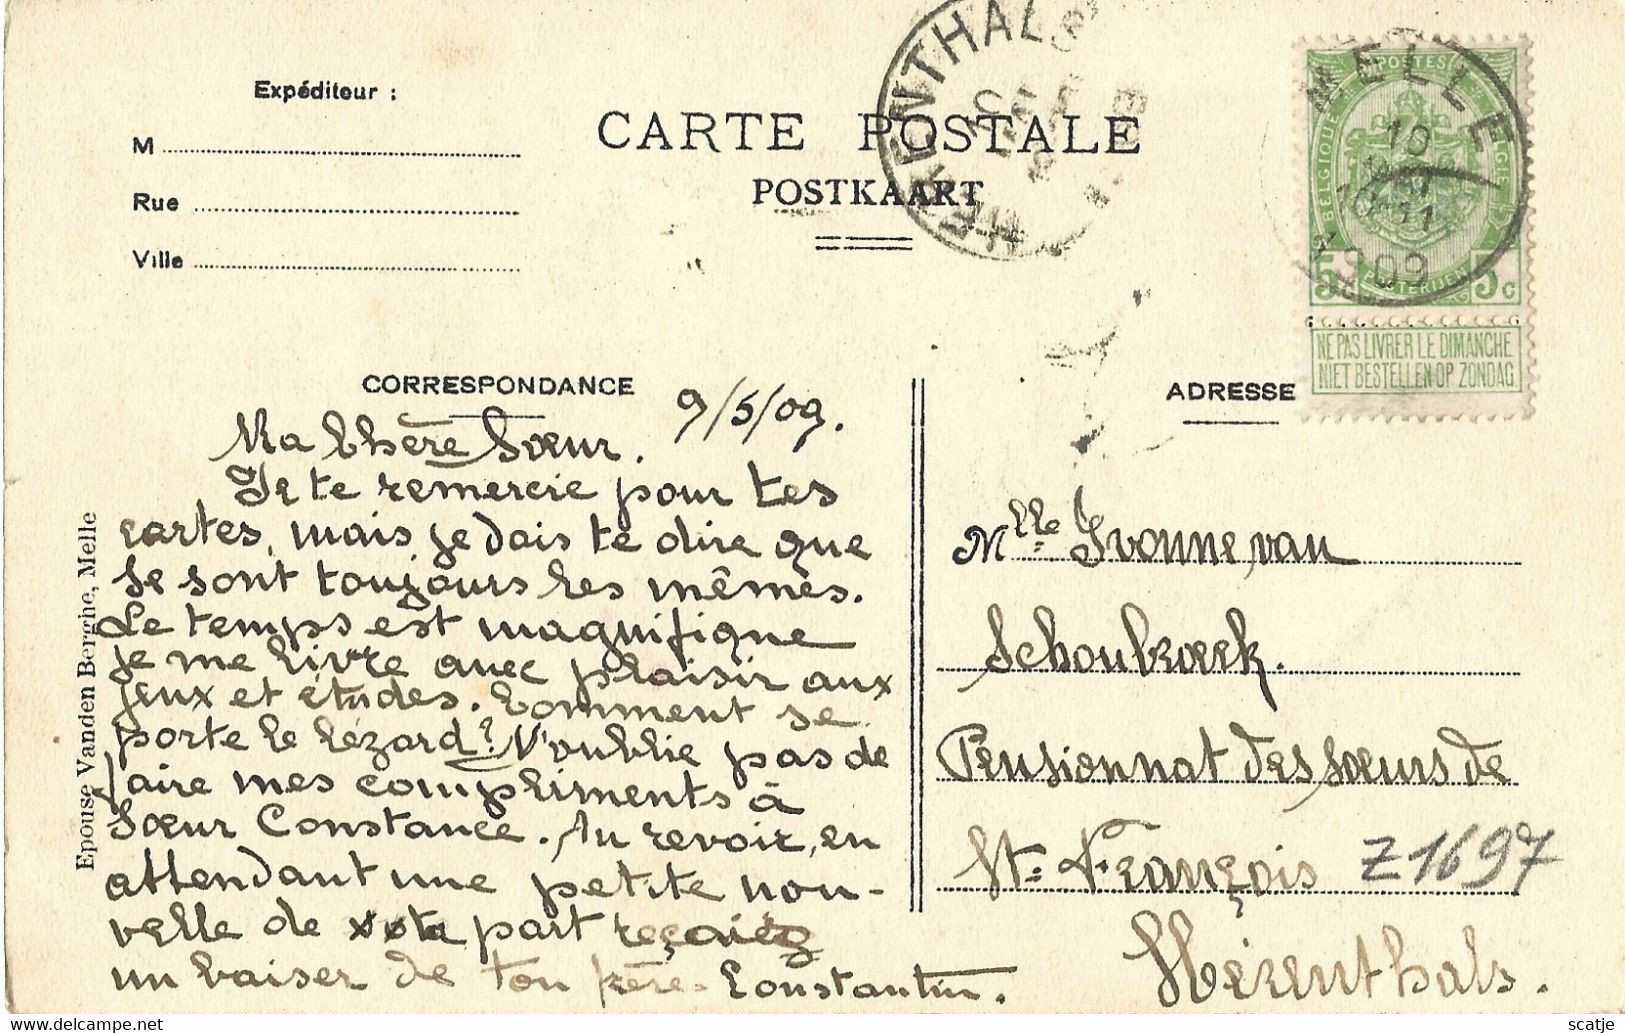 Expéditeur :
M
Rue
Ville
CARTE POSTALE
POSTKAART
HERENTHALS
MELLE
10
10-11
1909
POSTES
BELGIQUE
BELGIE
POSTERIJEN
5c 5c
NE PAS LIVRER LE DIMANCHE
NIET BESTELLEN OP ZONDAG
CORRESPONDANCE
ADRESSE
9/5/09.
Ma Chère Sœur.
Je te remercie pour tes
cartes, mais je dois te dire que
se sont toujours les mêmes.
Le temps est magnifique
je me livre avec plaisir aux
jeux et études. Comment se
porte le lézard? N'oublie pas de
faire mes compliments à
Sœur Constance. Au revoir, en
attendant une petite nou-
velle de ta part reçaiez
un baiser de ton frère. Constantin.
Mlle Ivonne van
Schoubroeck.
Pensionnat des sœurs de
St. François
Hérenthals.
Z1697
Epouse Vanden Berghe, Melle
scatje